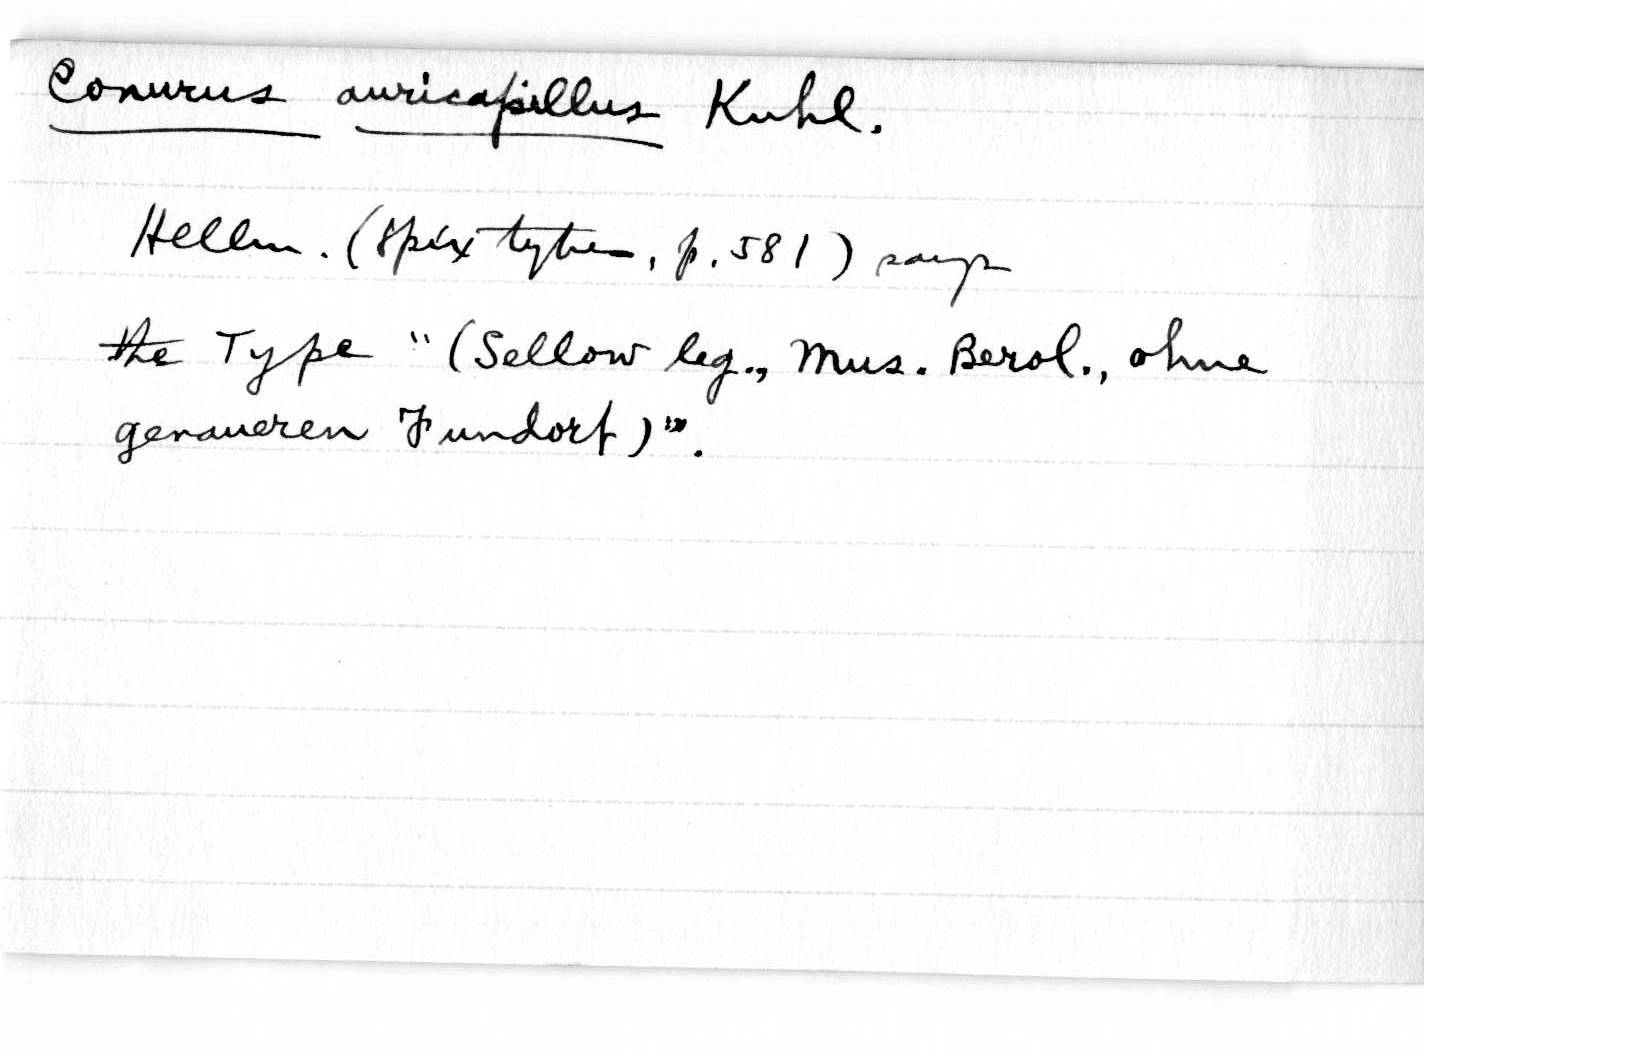 Conurus auricapillus Kuhl.
Hellm. (Spix types, p. 581) says
the Type "(Sellow leg., Mus. Berol., ohne
genaueren Fundort)".